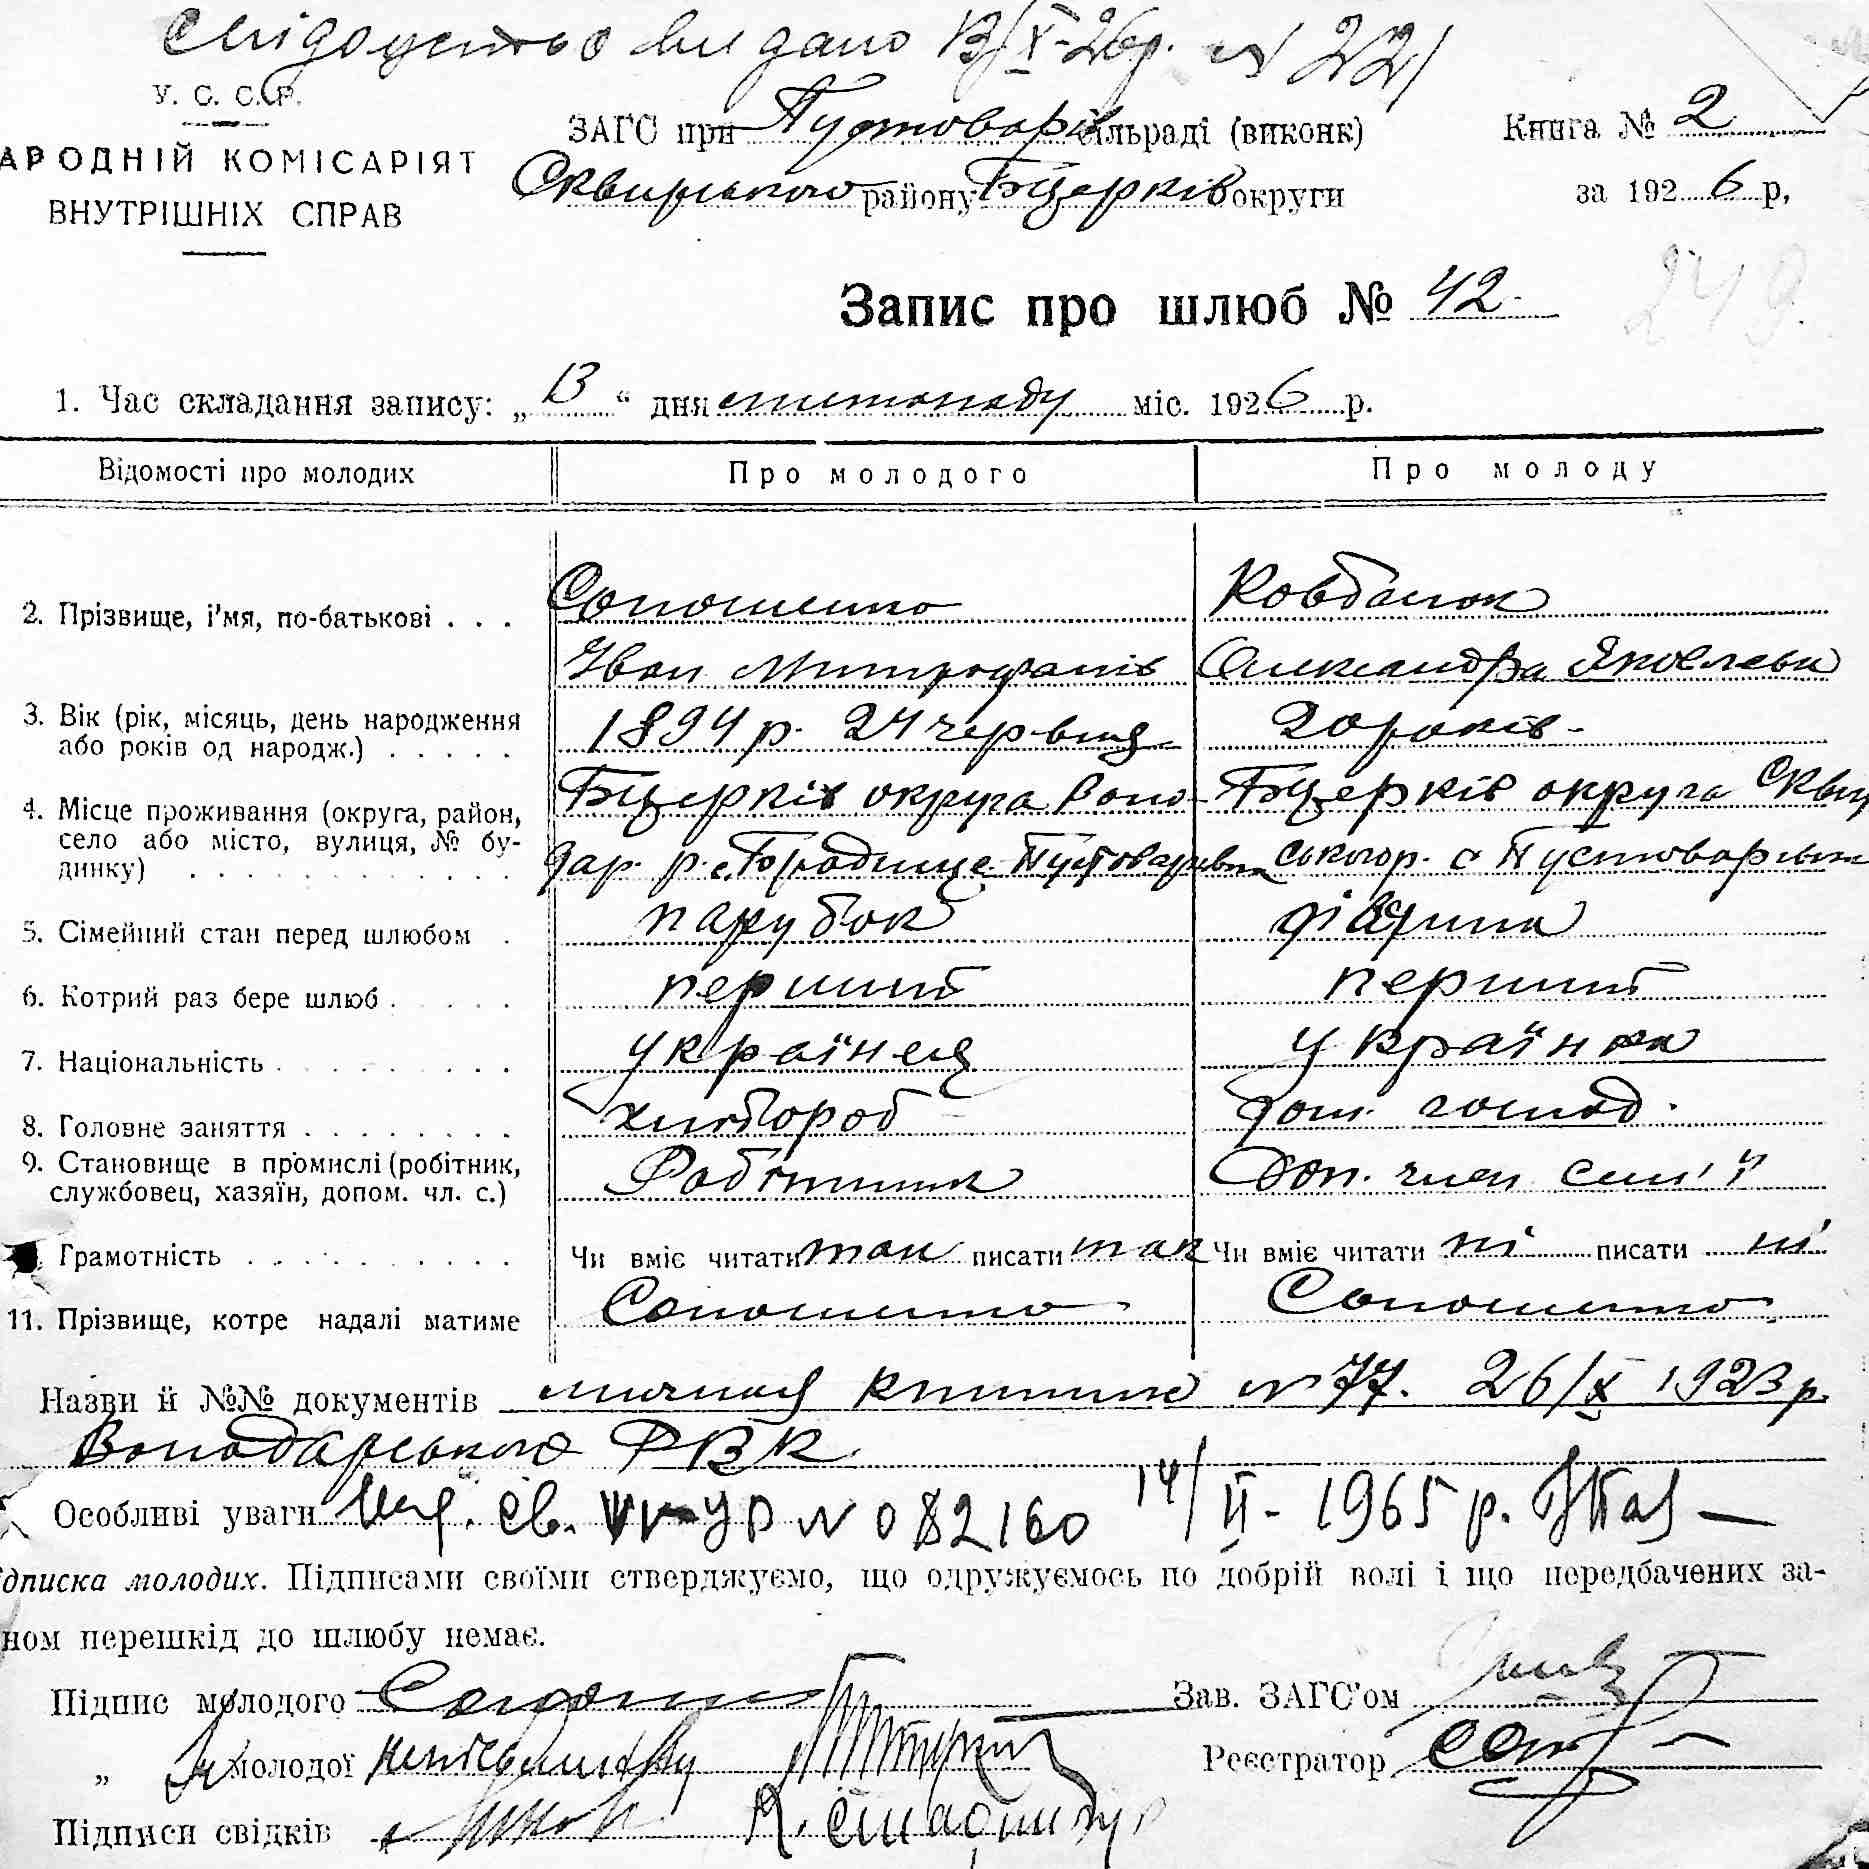 Свідоцтво видано 13/X-26р. N 221
У. С. С. Р.
АРОДНІЙ КОМІСАРІЯТ
ВНУТРІШНІХ СПРАВ
ЗАГС при Пустоварів сільраді (виконк)
Сквирського району Бцерків округи
Книга № 2
за 1926 р,
Запис про шлюб № 42.
249.
1. Час складання запису: „13“ дня листопаду міс. 1926 р.
Відомості про молодих Про молодого Про молоду
2. Прізвище, і'мя, по-батькові . . . Солошенко Ковбасюк
Іван Митрофанів Олександра Яковлева
3. Вік (рік, місяць, день народження 1894 р. 24 червця 20 років -
або років од народж.) . . . . .
4. Місце проживання (округа, район, Бцерків округа Воло- Бцерків округа Скви
село або місто, вулиця, № бу- дар. р. с. Городище-Пустоварівка ського р. с Пустоварівка
динку) . . . . . . . . . . . .
5. Сімейний стан перед шлюбом . парубок дівчина
6. Котрий раз бере шлюб . . . . . перший перший
7. Національність . . . . . . . . українець українка
8. Головне заняття . . . . . . . . хлібороб дом. господ.
9. Становище в промислі (робітник, Робітник Доп. член сем'ї
службовец, хазяїн, допом. чл. с.)
Грамотність . . . . . . . . . . Чи вміє читати так писати так Чи вміє читати ні писати ні
11. Прізвище, котре надалі матиме Солошенко Солошенко
Назви й №№ документів лична книжка N 77. 26/X 1923 р.
Володарського РВК
Особливі уваги св. УР N 082160 14/II - 1965 р.
ідписка молодих. Підписами своїми стверджуємо, що одружуємось по добрій волі і що передбачених за-
ном перешкід до шлюбу немає.
Підпис молодого Солошенко Зав. ЗАГС'ом
„ молодої неписьменна Реєстратор
Підписи свідків